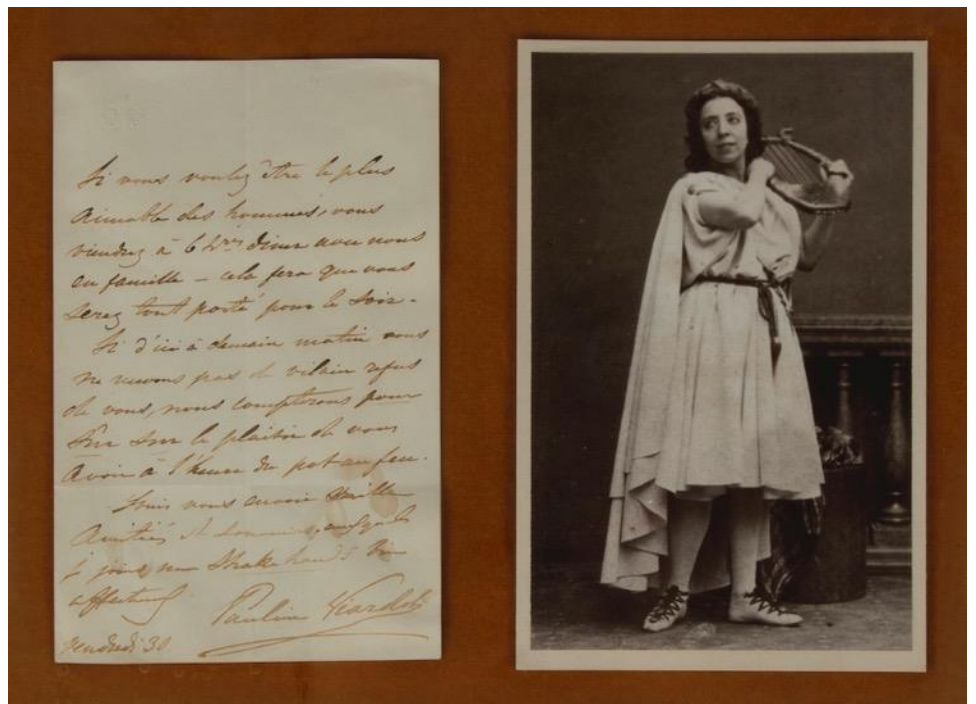 Si vous voulez être le plus
aimable des hommes, vous
viendrez à 6 hres diner avec nous
en famille – cela fera que vous
serez tout porté pour le soir –
Si d'ici à demain matin nous
ne recevons pas de vilain refus
de vous, nous compterons pour
sûr sur le plaisir de vous
avoir à l'heure du pot au feu.
Louis vous envoie mille
amitiés et
je joins un Shake hands bien
affectueux
Pauline Viardot
Vendredi 30